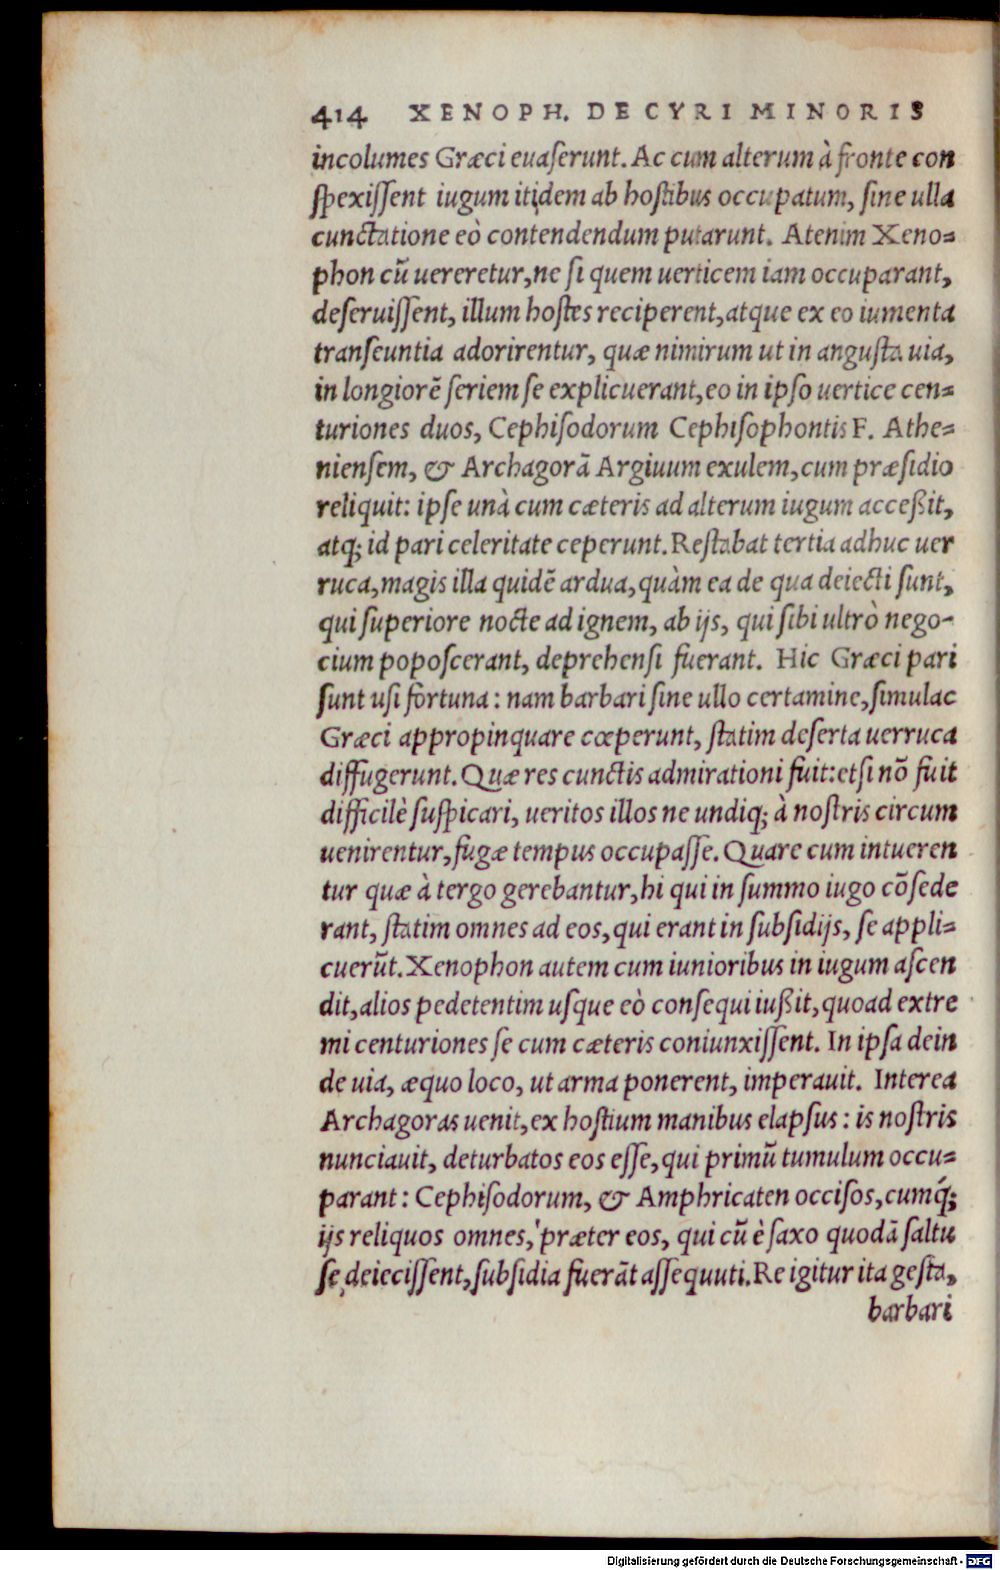 414 XENOPH. DE CYRI MINORIS
incolumes Græci euaſerunt. Ac cum alterum à fronte con
ſpexiſſent iugum itidem ab hoſtibus occupatum, ſine ulla
cunctatione eò contendendum putarunt. Atenim Xeno=
phon cū uereretur, ne ſi quem uerticem iam occuparant,
deſeruiſſent, illum hoſtes reciperent, atque ex eo iumenta
tranſeuntia adorirentur, quæ nimirum ut in anguſta uia,
in longiorē ſeriem ſe explicuerant, eo in ipſo uertice cen=
turiones duos, Cephiſodorum Cephiſophontis F. Athe=
nienſem, & Archagorā Argiuum exulem, cum præſidio
reliquit: ipſe unà cum cæteris ad alterum iugum acceßit,
atq; id pari celeritate ceperunt. Reſtabat tertia adhuc uer
ruca, magis illa quidē ardua, quàm ea de qua deiecti ſunt,
qui ſuperiore nocte ad ignem, ab ijs, qui ſibi ultrò nego-
cium popoſcerant, deprehenſi fuerant. Hic Græci pari
ſunt uſi fortuna: nam barbari ſine ullo certamine, ſimulac
Græci appropinquare cœperunt, ſtatim deſerta uerruca
diffugerunt. Quæ res cunctis admirationi fuit: etſi nō fuit
difficilè ſuſpicari, ueritos illos ne undiq; à noſtris circum
uenirentur, fugæ tempus occupaſſe. Quare cum intueren
tur quæ à tergo gerebantur, hi qui in ſummo iugo cōſede
rant, ſtatim omnes ad eos, qui erant in ſubſidijs, ſe appli=
cuerūt. Xenophon autem cum iunioribus in iugum aſcen
dit, alios pedetentim uſque eò conſequi iußit, quoad extre
mi centuriones ſe cum cæteris coniunxiſſent. In ipſa dein
de uia, æquo loco, ut arma ponerent, imperauit. Interea
Archagoras uenit, ex hoſtium manibus elapſus: is noſtris
nunciauit, deturbatos eos eſſe, qui primū tumulum occu=
parant: Cephiſodorum, & Amphricaten occiſos, cumq́;
ijs reliquos omnes, præter eos, qui cū è ſaxo quodā ſaltu
ſe deieciſſent, ſubſidia fuerāt aſſequuti. Re igitur ita geſta,
barbari
Digitalisierung gefördert durch die Deutsche Forschungsgemeinschaft - DFG